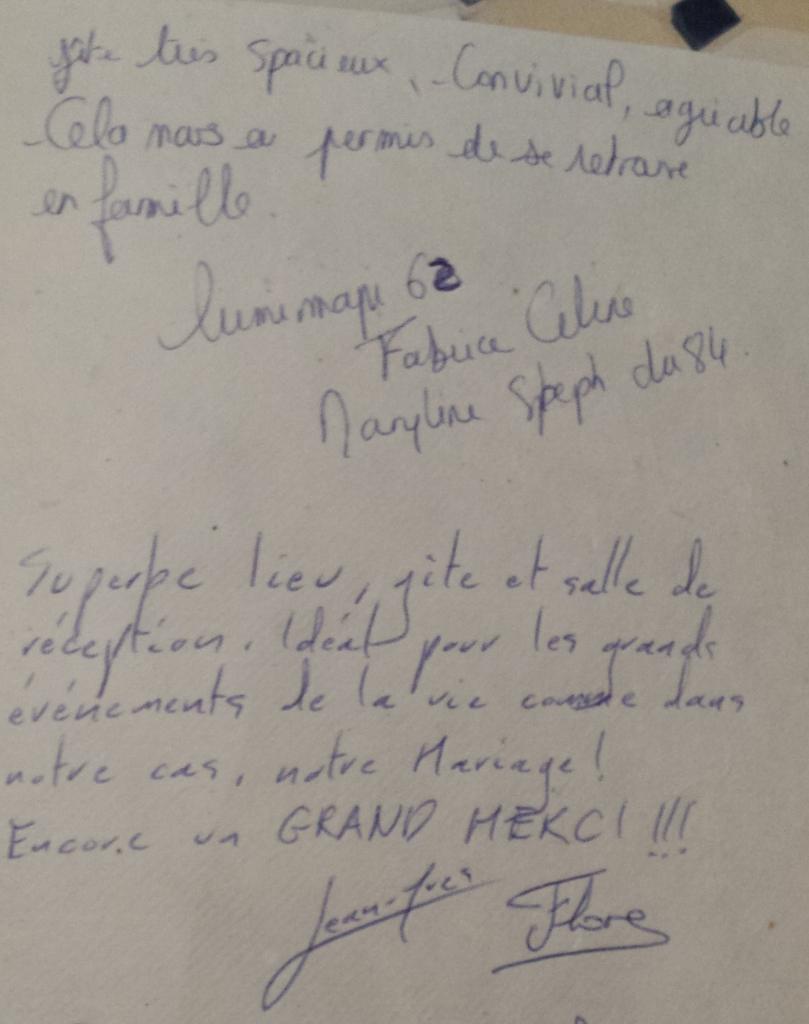 gîte très spacieux, Convivial, agréable
Cela nous a permis de se retrouve
en famille.
62
Fabrice Celine
Maryline Steph du 84.
Superbe lieu, gîte et salle de
réception. Idéal pour les grands
événements de la vie comme dans
notre cas, notre Mariage!
Encore un GRAND MERCI !!!
Jean-Yves Flore